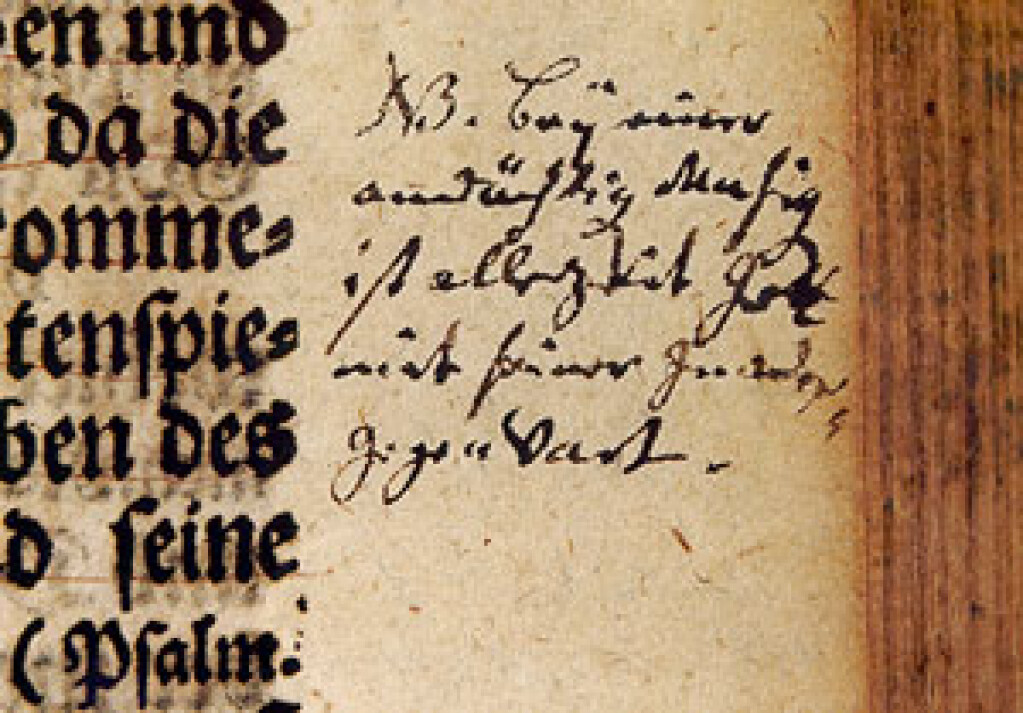 en und
da die
omme⸗
tenſpie⸗
ben des
ſeine
(Pſalm.
NB. Beÿ einer
andächtig Musig
ist allezeit Gott
mit seiner Gnaden
Gegenwart.